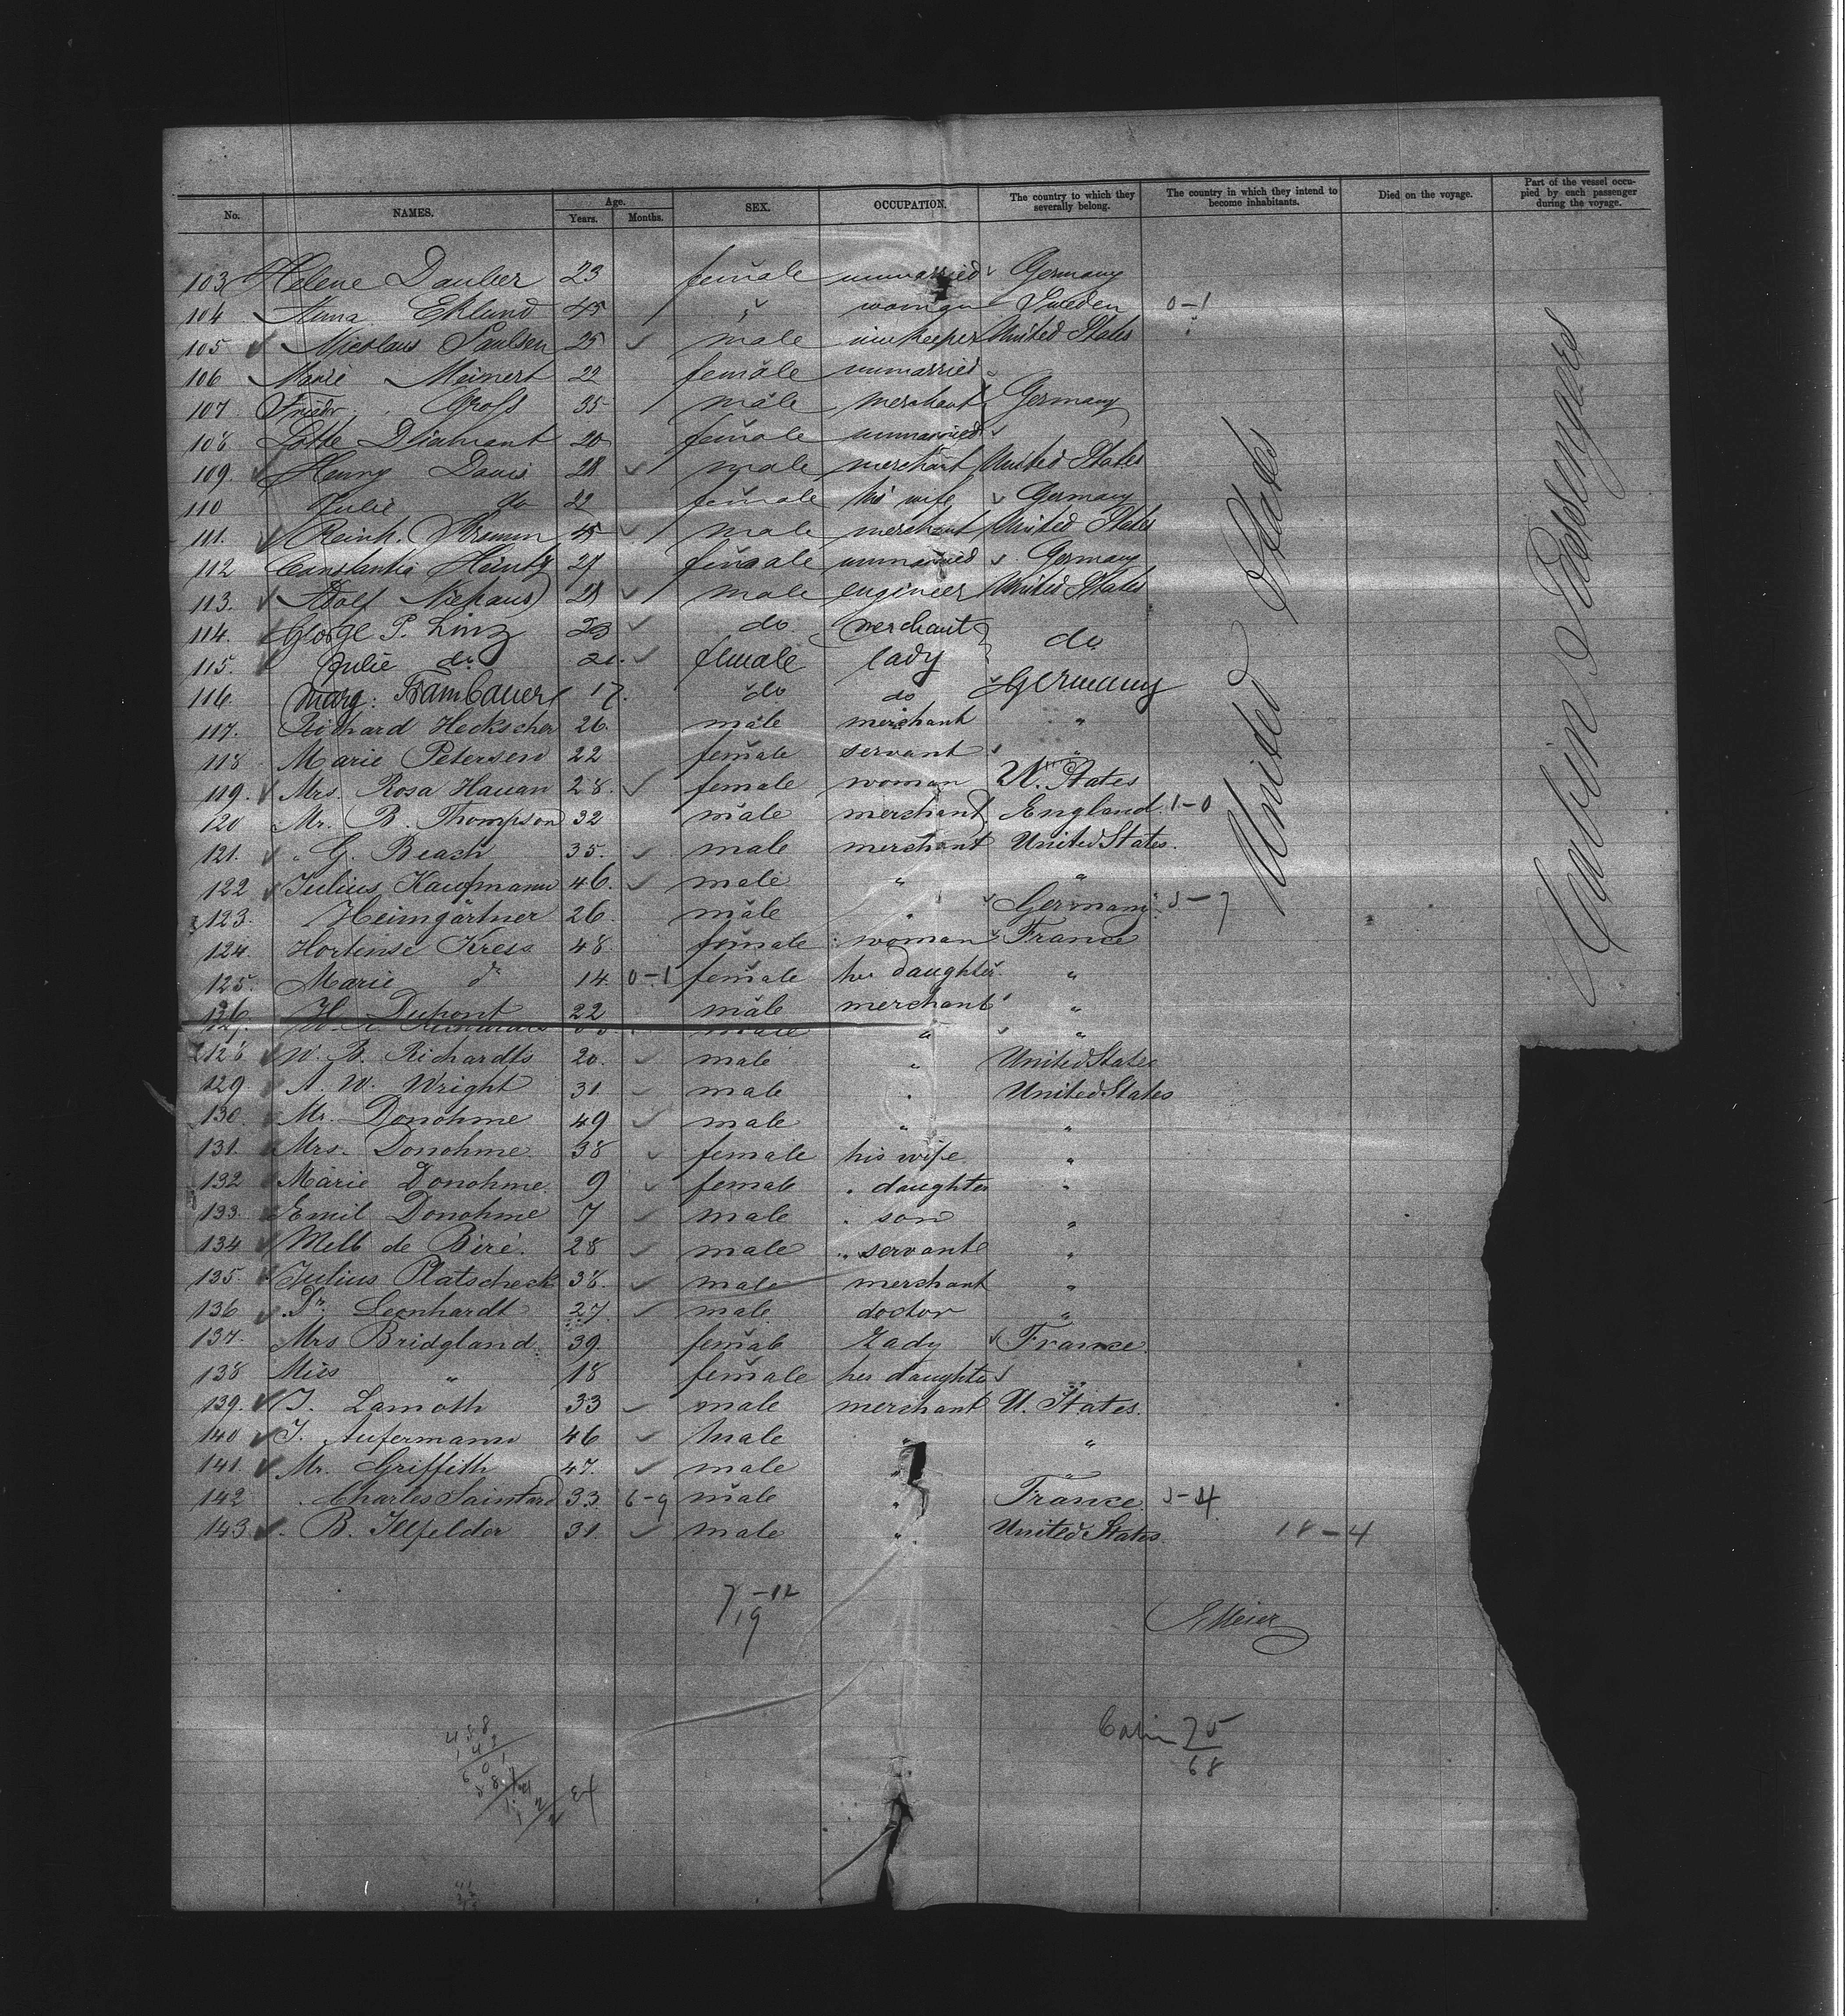 No. NAMES. Age. Years. Months. SEX. OCCUPATION. The country to which they severally belong. The country in which they intend to become inhabitants. Died on the voyage. Part of the vessel occupied by each passenger during the voyage.
103 Helene Dauber 23 female unmarried Germany
104 Anna Eklund 45 " woman Sweden 0-1
105 Nicolaus Paulsen 25 male innkeeper United States
106 Marie Meinert 22 female unmarried
107 Friedr. Groß 35 male merchant Germany
108 Lotte Diamant 20 female unmarried
109. Henry Davis 28 male merchant United States
110 Julie do 22 female his wife Germany
111. Reinh. 45 male merchant United States
112 Constantia Heintz 27 female unmarried Germany
113. Adolf Niehaus 28 male engineer United States
114. George P. Linz 23 do merchant do
115. Julie do. 21. female lady
116 Marg: 17. do do Germany
117. Richard Heckscher 26. male merchant "
118 Marie Petersen 22 female servant "
119. Mrs. Rosa Hauan 28. female woman U. States
120 Mr. B. Thompson 32 male merchant England. 1-0
121. " G. Beach 35. male merchant United States.
122 Julius Kaufmann 46. male " "
123. Heimgärtner 26. male " Germany. 5-7
124. Hortense Kress 48. female woman France
125. Marie do 14. 0-1 female her daughter "
126 H. Dupont 22 male merchant "
127. male " "
128 W. B. Richardts 20. male " United States
129 A. W. Wright 31 male " United States
130. Mr. Donohme 49 male " "
131. Mrs. Donohme. 38 female his wife "
132 Marie Donohme. 9 female " daughter "
133. Emil Donohme 7 male " son "
134 Mell de Biré. 28 male " servante "
135. Julius Platscheck 38. male merchant "
136 Dr. Leonhardt 27. male doctor "
137. Mrs Bridgland. 39. female Lady France.
138 Miss " 18 female her daughter "
139. J. Lamoth 33 male merchant U. States.
140 J. Aufermann 46 male " "
141. Mr. Griffith 47. male "
142 " Charles Saintard 33 6-9 male " France. 5-4
143 " B. Illfelder 31. male " United States. 18-4
United States
Cabin Passengers
7-12
19
E Meier
Cabin 75
68